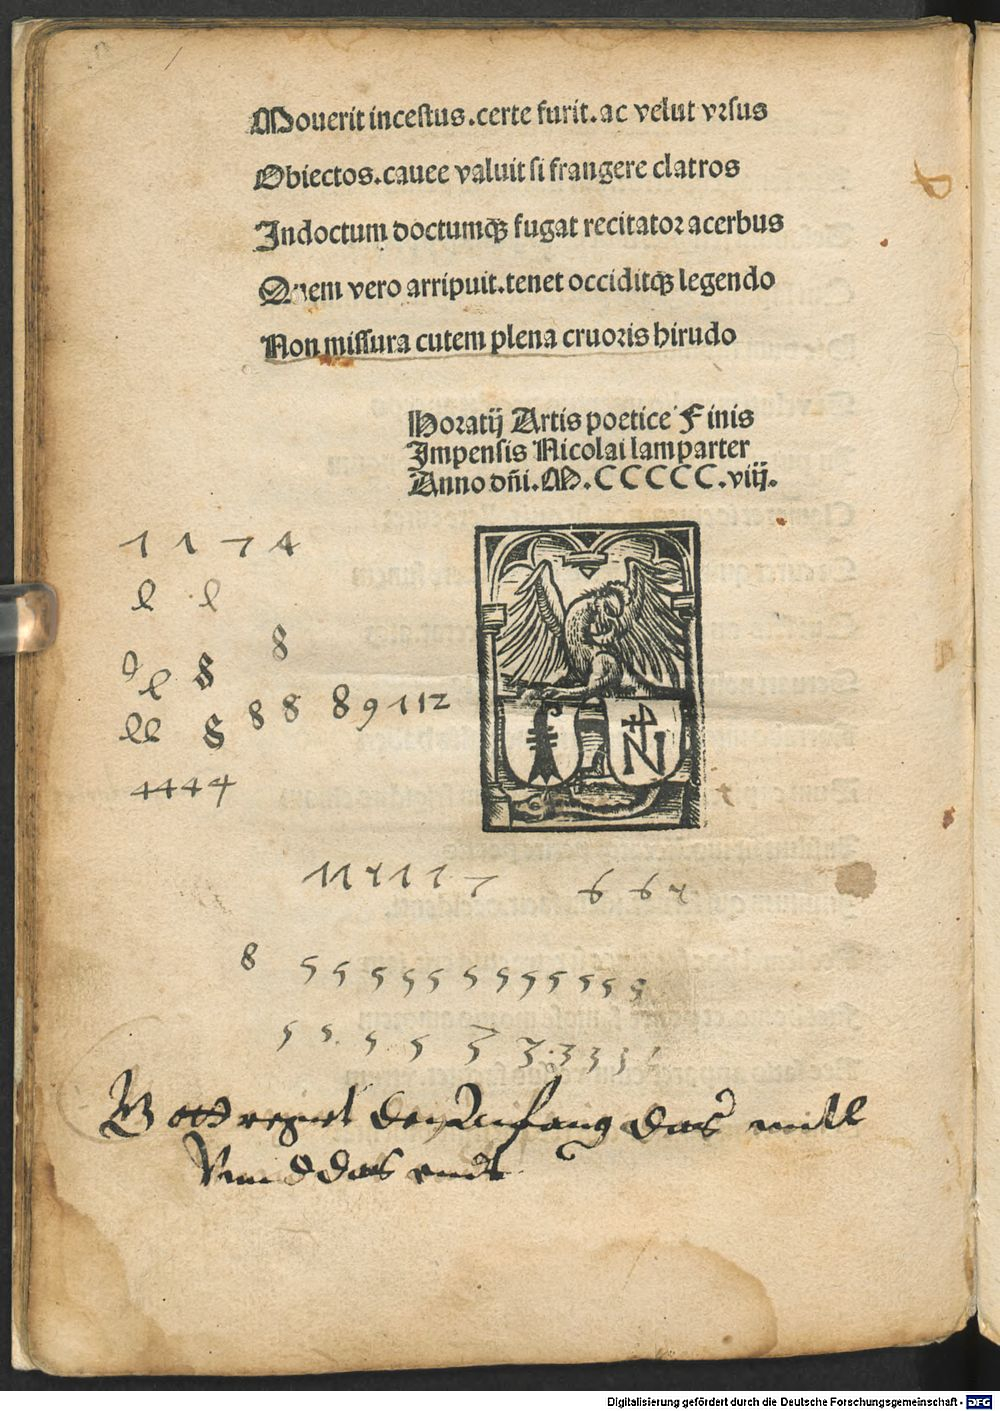 Mouerit incestus.certe furit.ac velut vrsus
Obiectos.cauee valuit si frangere clatros
Indoctum doctumqꝫ fugat recitator acerbus
Quem vero arripuit.tenet occiditqꝫ legendo
Non missura cutem plena cruoris hirudo
Horatij Artis poetice Finis
Impensis Nicolai lamparter
Anno dñi.M.CCCCC.viij.
1 1 7 4
l l
8
l 8
ll 8 8 8 8 9 11 12
4 4 4 4
N
6 6
8 5 5 5 5 5 5 5 5 5 5 5 5
5 5 5 5 3 3 3 3 3
Gott regiert den Anfang das mitl
Vnnd das endt
Digitalisierung gefördert durch die Deutsche Forschungsgemeinschaft - DFG